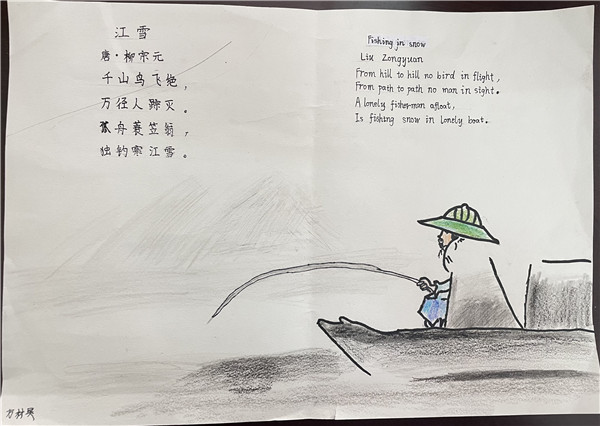 江雪
唐·柳宗元
千山鸟飞绝，
万径人踪灭。
孤舟蓑笠翁，
独钓寒江雪。
Fishing in snow
Liu Zongyuan
From hill to hill no bird in flight,
From path to path no man in sight.
A lonely fisherman afloat,
Is fishing snow in lonely boat.